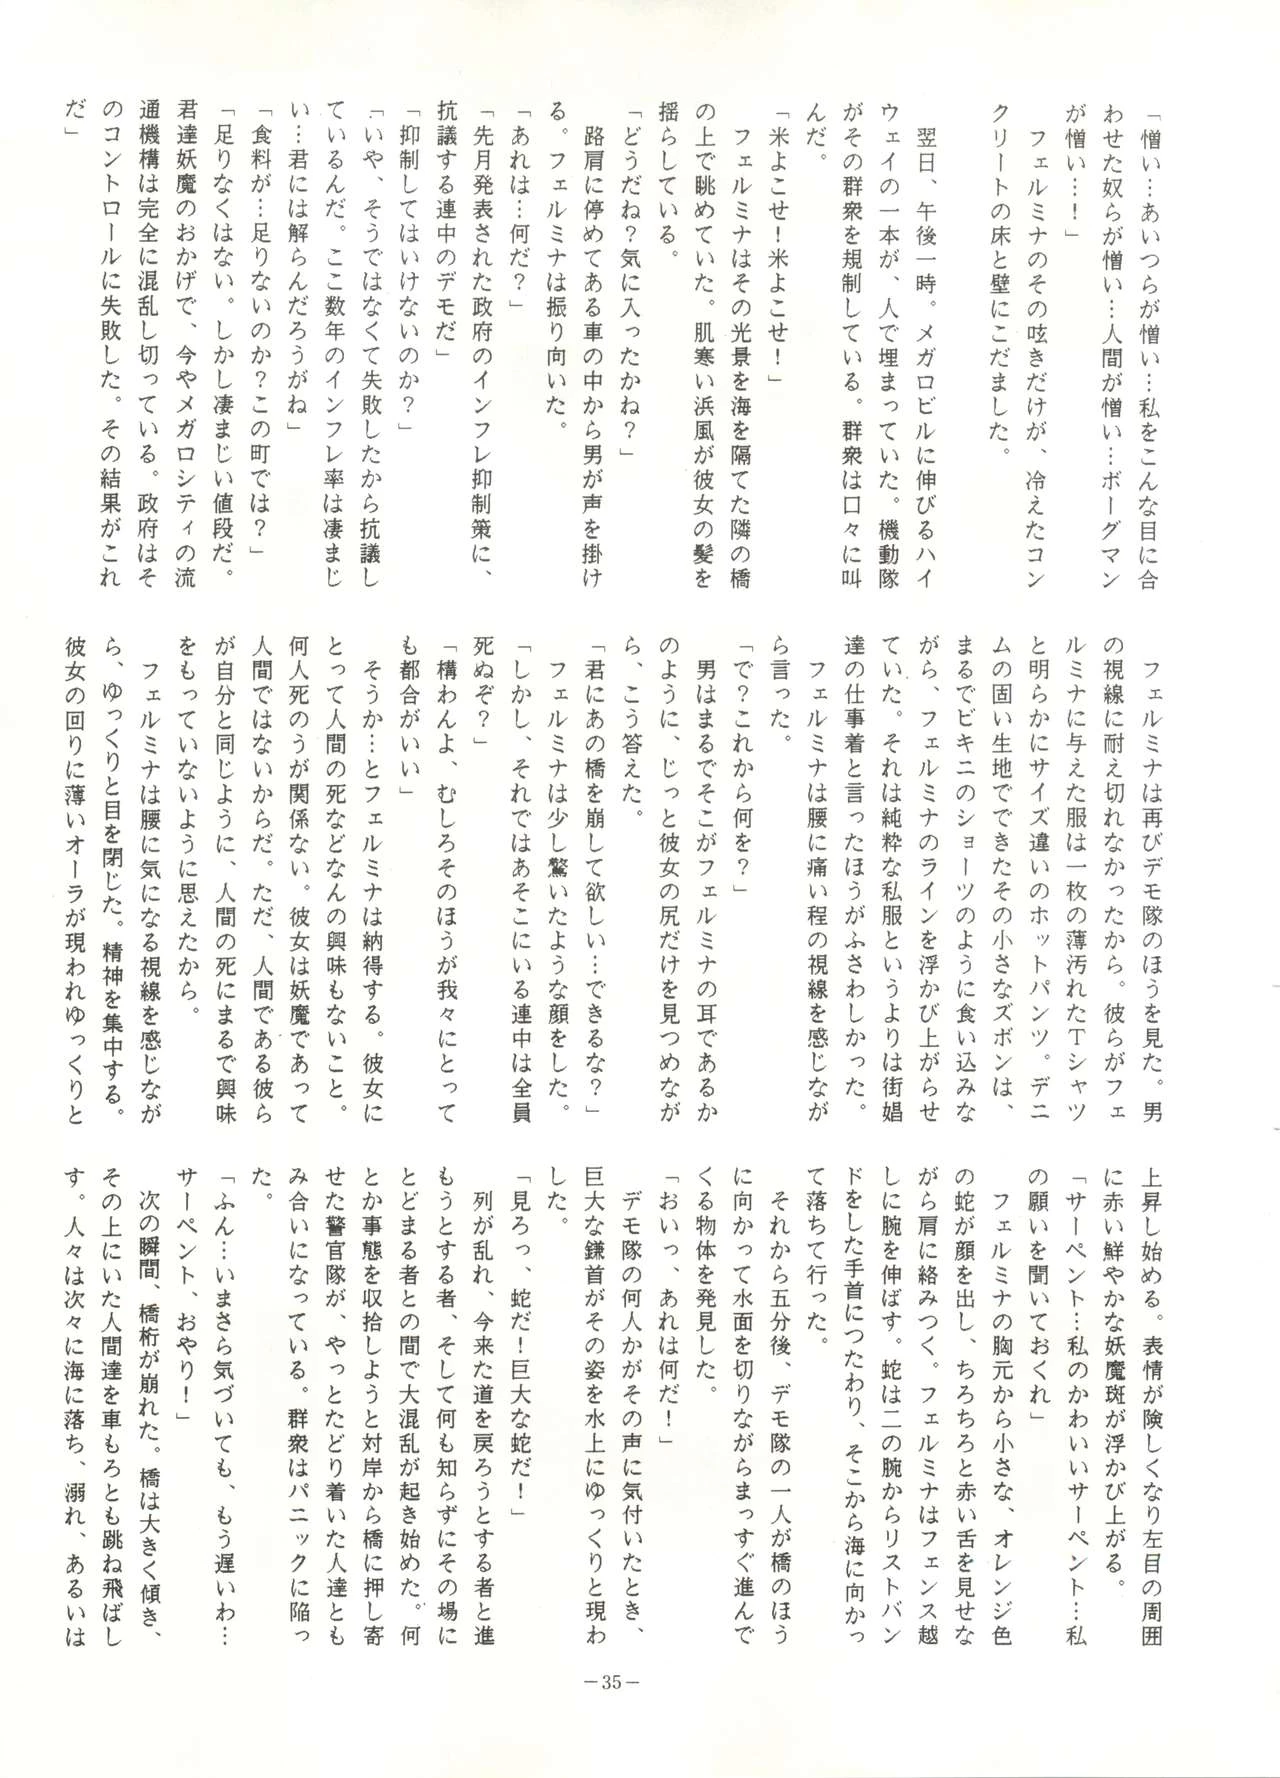 「憎い…あいつらが憎い…私をこんな目に合
わせた奴らが憎い…人間が憎い…ボーグマン
が憎い…！」
　フェルミナのその呟きだけが、冷えたコン
クリートの床と壁にこだました。
　翌日、午後一時。メガロビルに伸びるハイ
ウェイの一本が、人で埋まっていた。機動隊
がその群衆を規制している。群衆は口々に叫
んだ。
「米よこせ！米よこせ！」
　フェルミナはその光景を海を隔てた隣の橋
の上で眺めていた。肌寒い浜風が彼女の髪を
揺らしている。
「どうだね？気に入ったかね？」
　路肩に停めてある車の中から男が声を掛け
る。フェルミナは振り向いた。
「あれは…何だ？」
「先月発表された政府のインフレ抑制策に、
抗議する連中のデモだ」
「抑制してはいけないのか？」
「いや、そうではなくて失敗したから抗議し
ているんだ。ここ数年のインフレ率は凄まじ
い…君には解らんだろうがね」
「食料が…足りないのか？この町では？」
「足りなくはない。しかし凄まじい値段だ。
君達妖魔のおかげで、今やメガロシティの流
通機構は完全に混乱し切っている。政府はそ
のコントロールに失敗した。その結果がこれ
だ」
　フェルミナは再びデモ隊のほうを見た。男
の視線に耐え切れなかったから。彼らがフェ
ルミナに与えた服は一枚の薄汚れたＴシャツ
と明らかにサイズ違いのホットパンツ。デニ
ムの固い生地でできたその小さなズボンは、
まるでビキニのショーツのように食い込みな
がら、フェルミナのラインを浮かび上がらせ
ていた。それは純粋な私服というよりは街娼
達の仕事着と言ったほうがふさわしかった。
　フェルミナは腰に痛い程の視線を感じなが
ら言った。
「で？これから何を？」
　男はまるでそこがフェルミナの耳であるか
のように、じっと彼女の尻だけを見つめなが
ら、こう答えた。
「君にあの橋を崩して欲しい…できるな？」
　フェルミナは少し驚いたような顔をした。
「しかし、それではあそこにいる連中は全員
死ぬぞ？」
「構わんよ、むしろそのほうが我々にとって
も都合がいい」
　そうか…とフェルミナは納得する。彼女に
とって人間の死などなんの興味もないこと。
何人死のうが関係ない。彼女は妖魔であって
人間ではないからだ。ただ、人間である彼ら
が自分と同じように、人間の死にまるで興味
をもっていないように思えたから。
　フェルミナは腰に気になる視線を感じなが
ら、ゆっくりと目を閉じた。精神を集中する。
彼女の回りに薄いオーラが現われゆっくりと
上昇し始める。表情が険しくなり左目の周囲
に赤い鮮やかな妖魔斑が浮かび上がる。
「サーペント…私のかわいいサーペント…私
の願いを聞いておくれ」
　フェルミナの胸元から小さな、オレンジ色
の蛇が顔を出し、ちろちろと赤い舌を見せな
がら肩に絡みつく。フェルミナはフェンス越
しに腕を伸ばす。蛇は二の腕からリストバン
ドをした手首につたわり、そこから海に向かっ
て落ちて行った。
　それから五分後、デモ隊の一人が橋のほう
に向かって水面を切りながらまっすぐ進んで
くる物体を発見した。
「おいっ、あれは何だ！」
　デモ隊の何人かがその声に気付いたとき、
巨大な鎌首がその姿を水上にゆっくりと現わ
した。
「見ろっ、蛇だ！巨大な蛇だ！」
　列が乱れ、今来た道を戻ろうとする者と進
もうとする者、そして何も知らずにその場に
とどまる者との間で大混乱が起き始めた。何
とか事態を収拾しようと対岸から橋に押し寄
せた警官隊が、やっとたどり着いた人達とも
み合いになっている。群衆はパニックに陥っ
た。
「ふん…いまさら気づいても、もう遅いわ…
サーペント、おやり！」
　次の瞬間、橋桁が崩れた。橋は大きく傾き、
その上にいた人間達を車もろとも跳ね飛ばし
す。人々は次々に海に落ち、溺れ、あるいは
－35－